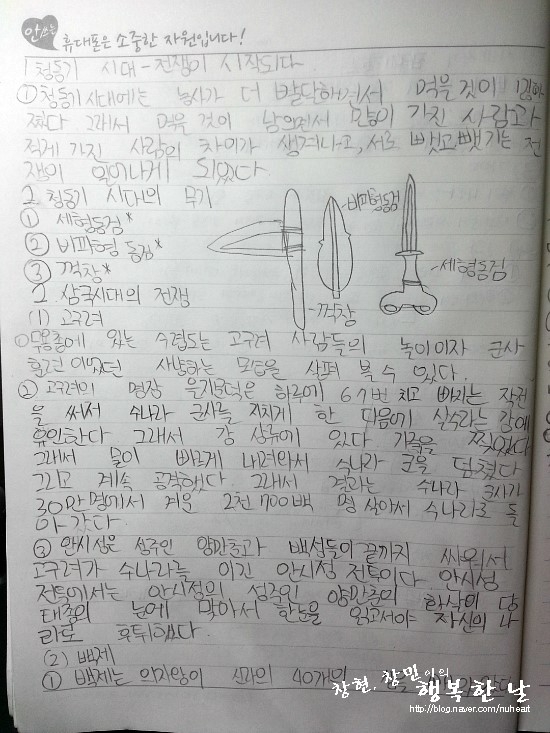 안쓰는 휴대폰은 소중한 자원입니다!
1 청동기 시대-전쟁이 시작되다
① 청동기시대에는 농사가 더 발달하면서 먹을 것이
졌다 그래서 먹을 것이 남의면서 많이 가진 사람과
적게 가진 사람의 차이가 생겨나고, 서로 뺏고, 뺏기는 전
쟁이 일어나게 되었다
2 청동기 시대의 무기
① 세형동검*
② 비파형 동검*
③ 꺽창*
비파형동검
세형동검
꺽창
2 삼국시대의 전쟁
(1) 고구려
① 무용총에 있는 수렵도는 고구려 사람들의 놀이이자 군사
훈련 이었던 사냥하는 모습을 살펴 볼 수 있다.
② 고구려의 명장 을지문덕은 하루에 6 7번 치고 빠지는 작전
을 써서 수나라 군사를 지치게 한 다음에 살수라는 강에
유인한다 그래서 강 상류에 있다 가죽을 찢었다
그래서 물이 빠르게 내려와서 수나라 군을 덮쳤다
그리고 계속 공격했다. 그래서 결과는 수나라 군사가
30만명에서 겨운 2천 700백 명 살아서 수나라로 돌
아 간다
③ 안시성은 성주인 양만춘과 백성들이 끝까지 싸워서
고구려가 수나라를 이긴 안시성 전투이다 안시성
전투에서는 안시성의 성주인 양만춘의 화살이 당
태종의 눈에 맞아서 한눈을 잃고서야 자신의 나
라로 후퇴했다
(2) 백제
① 백제는 의자왕이 신라의 40개의
창현, 창민이의
행복한 날
http://blog.naver.com/nuheart